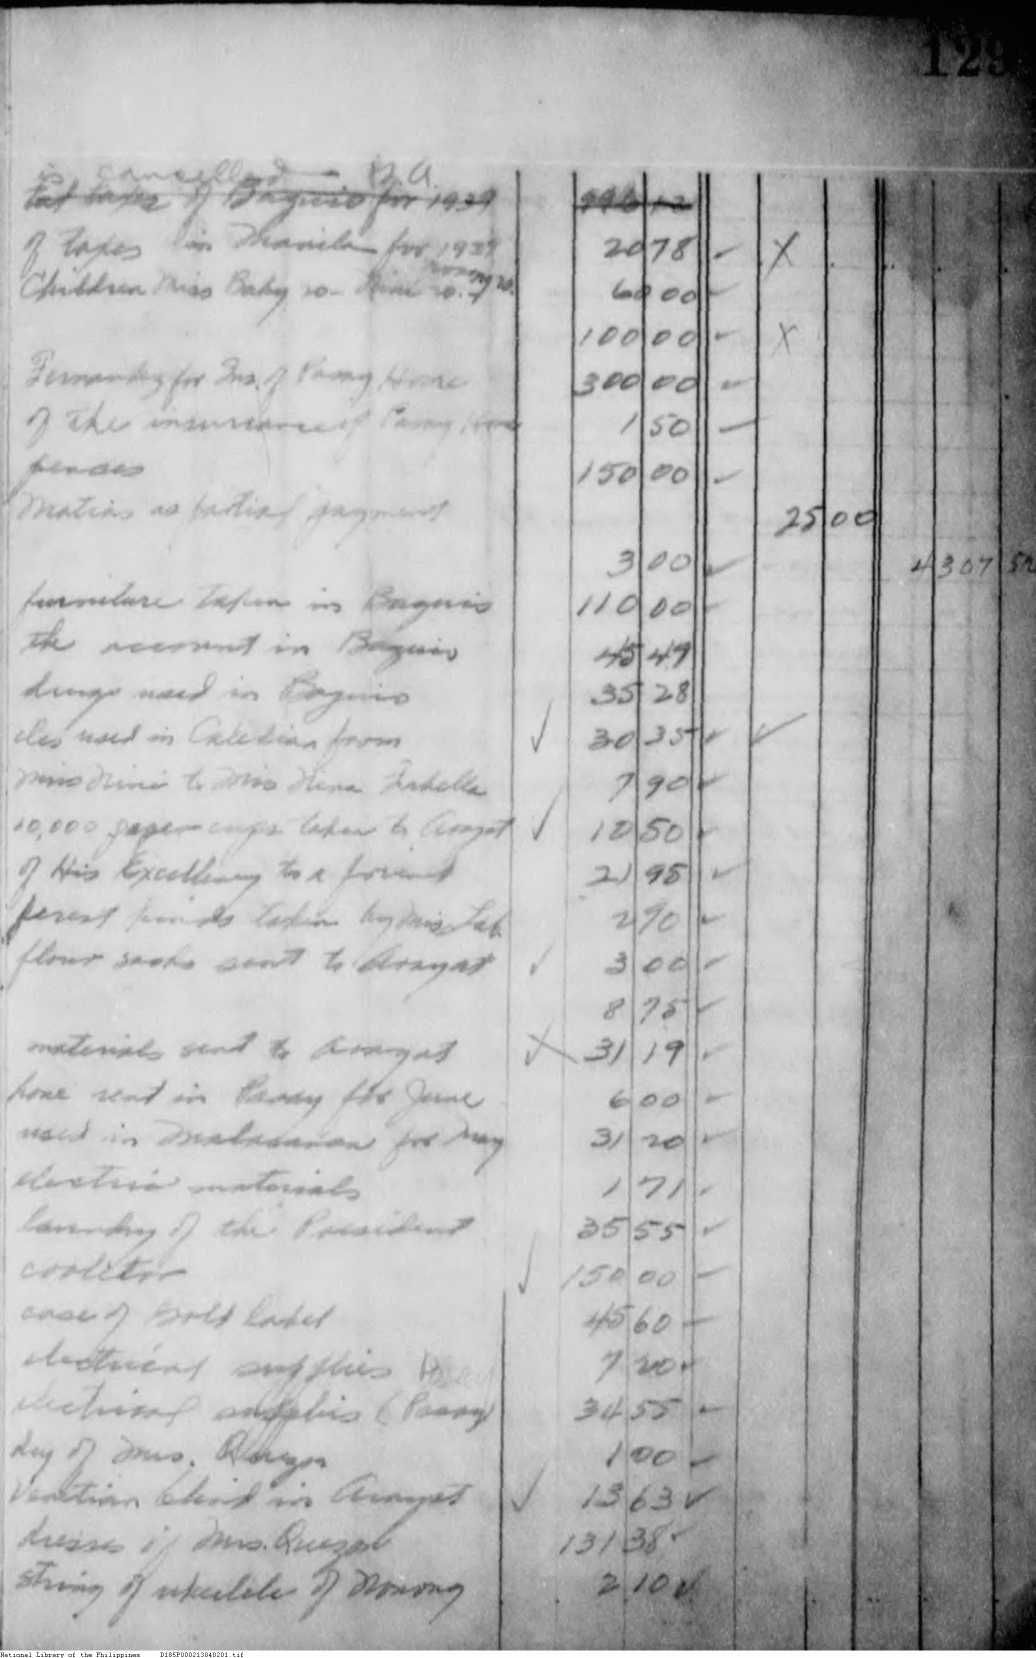 129
is cancelled - 
taxes of Baguio for 1939 996 12
of taxes in Manila for 1939 20 78 ✓ X
Children Miss Baby 20 - Nini 20. Nonong 20. 60 00 ✓
100 00 ✓ X
Fernandez for Ins. of Pasay House 300 00 ✓
of the insurance of Pasay House 1 50 ✓
penses 150 00 ✓
Matias as partial payment 25 00
3 00 ✓ 4307 52
furniture taken in Baguio 110 00 ✓
the account in Baguio 45 49
drugs used in Baguio 35 28
cles used in from ✓ 30 35 ✓ ✓
Miss Nini to Miss 7 90 ✓
10,000 paper cups taken to Arayat ✓ 10 50 ✓
of His Excellency to a friend 21 95 ✓
ferent taken by Miss 2 90 ✓
flour sacks sent to Arayat ✓ 3 00 ✓
8 75 ✓
materials sent to Arayat X 31 19 ✓
hone rent in Pasay for June 6 00 ✓
used in Malacanan for May 31 20 ✓
electric materials 1 71 ✓
laundry of the President 35 55 ✓
✓ 150 00 ✓
case of Gold Label 45 60 ✓
electrical supplies 7 20 ✓
electrical supplies (Pasay) 34 55 ✓
dry of Mrs. Quezon 1 00 ✓
Venetian blind in Arayat ✓ 13 63 ✓
dresses of Mrs. Quezon 131 38 ✓
string of ukelele of Nonong 2 10 ✓
National Library of the Philippines D185P000213040201.tif